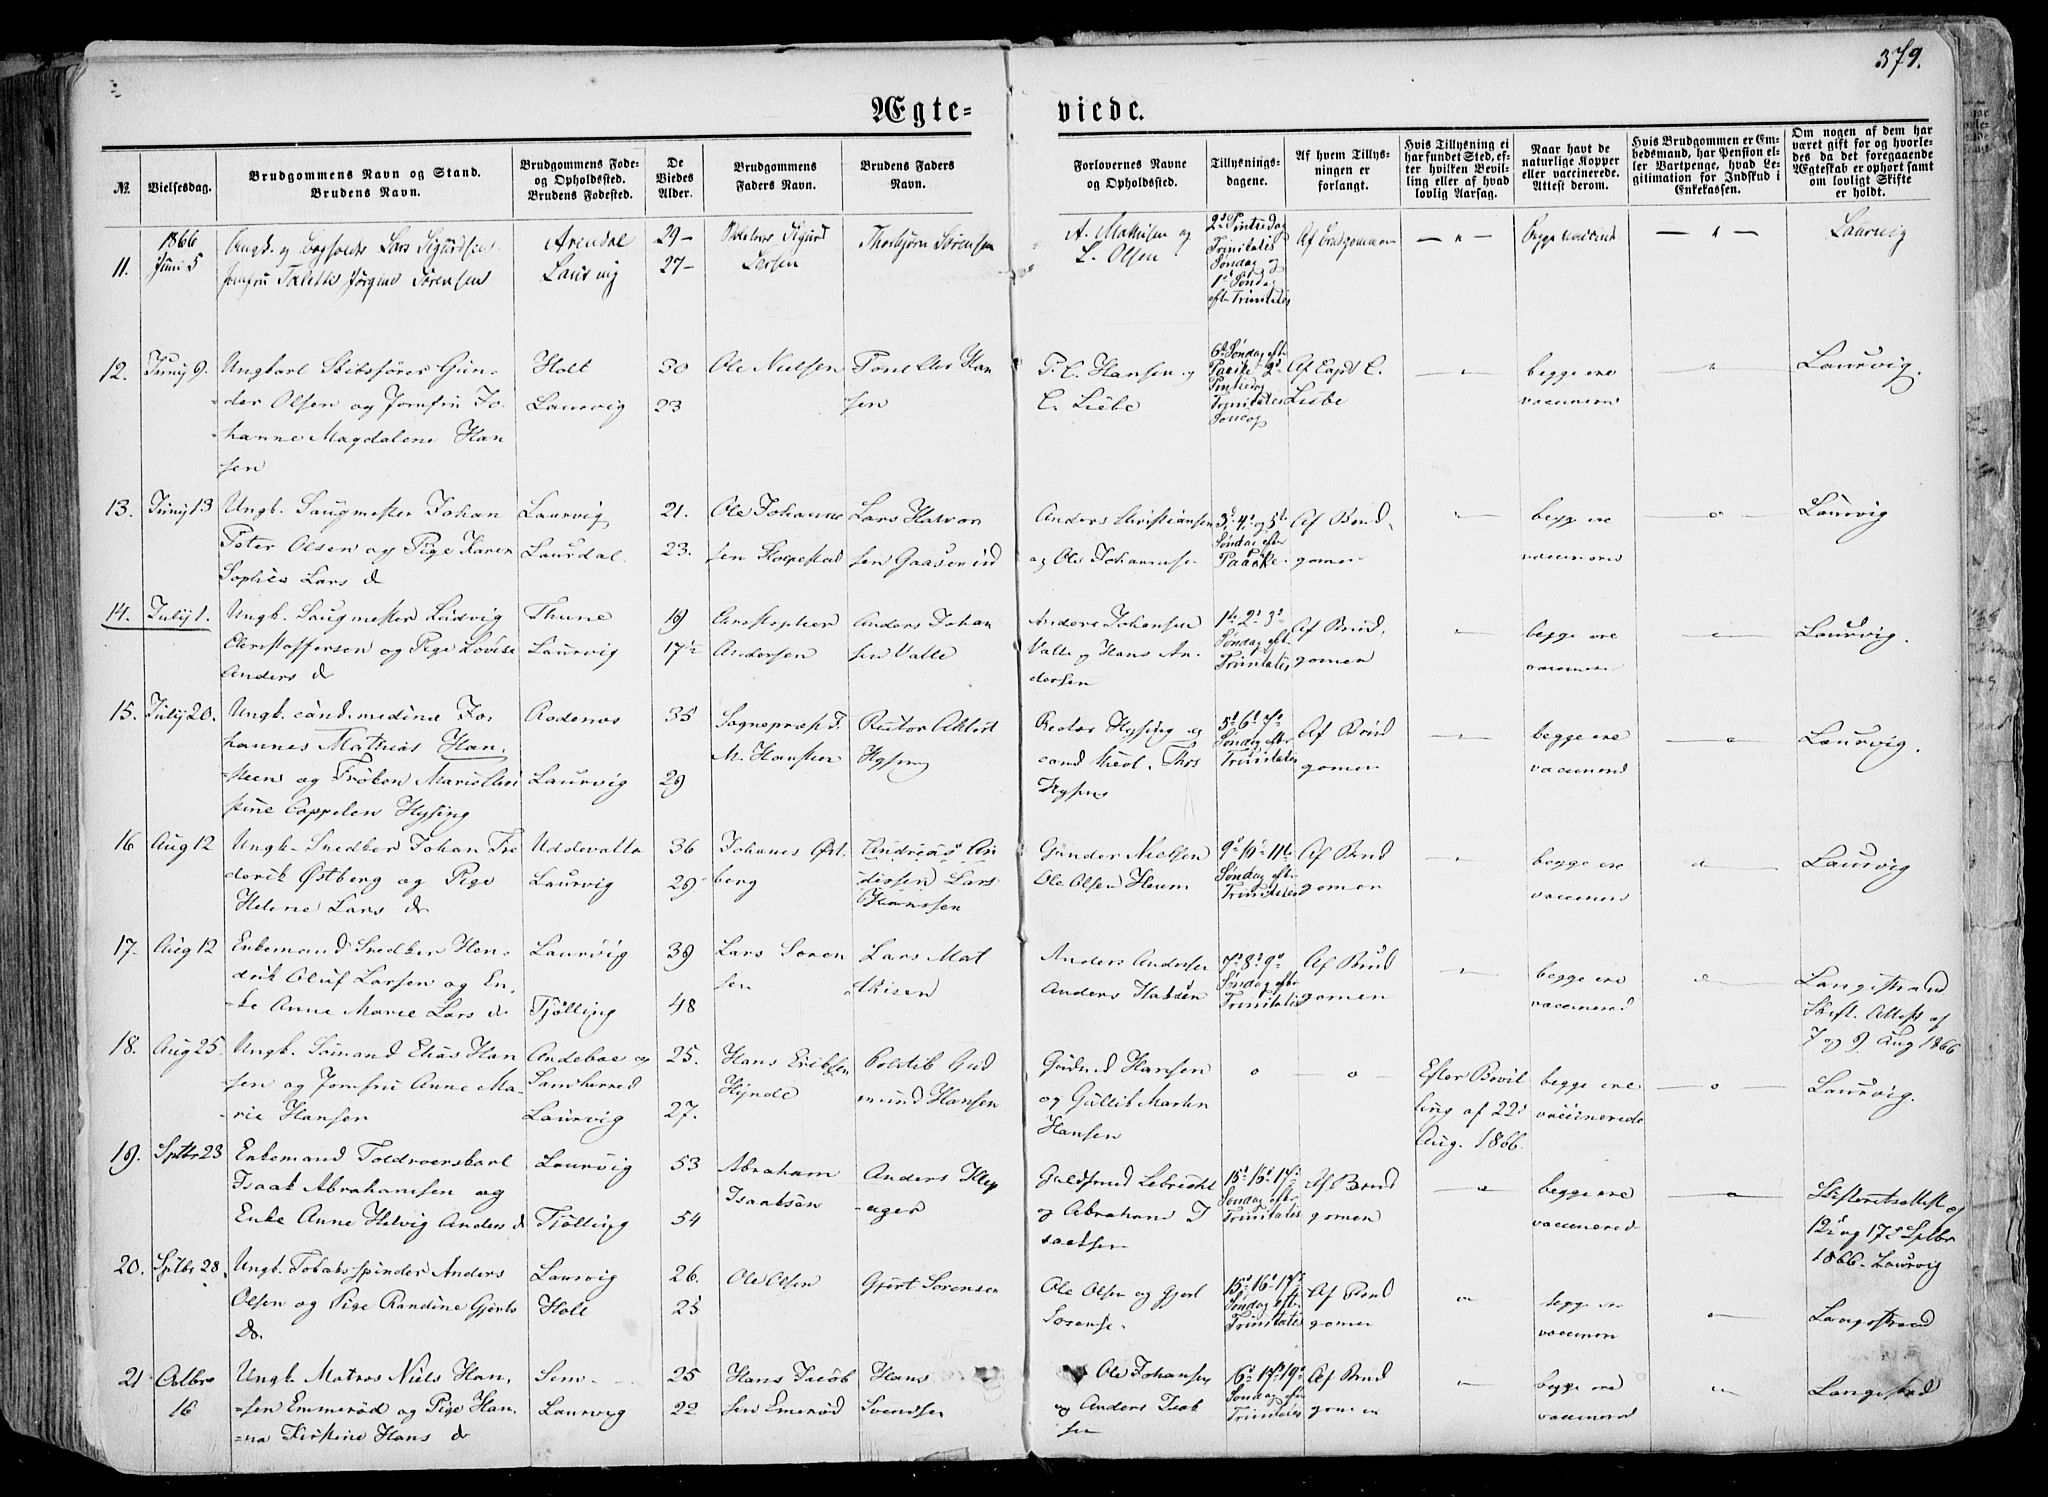 379.
Ægte=
viede.
№.
Vielsesdag.
Brudgommens Navn og Stand.
Brudens Navn.
Brudgommens Fode-
og Opholdsted.
Brudens Fødested.
De
Viedes
Alder.
Brudgommens
Faders Navn.
Brudens Faders
Navn.
Forlovernes Navne
og Opholdssted.
Tillysnings-
dagene.
Af hvem Tillys-
ningen er
forlangt.
Hvis Tillysning ei
har fundet Sted, ef-
ter hvilken Bevil-
ling eller af hvad
lovlig Aarsag.
Naar havt de
naturlige Kopper
eller vaccinerede.
Attest derom.
Hvis Brudgommen er Em-
bedsmand, har Pension el-
ler Vartpenge, hvad Le-
gitimation for Indskud i
Enkekassen.
Om nogen af dem har
været gift før og hvorle-
des da det foregaaende
Ægteskab er ophørt samt
om lovligt Skifte
er holdt.
1866
11. Juni 5
Ungk. Lars Sigurdsen
Jomfru Jørgine Sørensen
Arendal
Laurvig
29
27
Sigurd
Larsen
Thorbjørn Sørensen
A. Mathisen og
L. Olsen
2d Pintsedag
Trinitatis
Søndag og
1d Søndag
eft. Trinitatis
Af Brudgommen
Laurvig
12. Junij 9.
Ungkarl Skibsfører Gun-
der Olsen og Jomfru Jo-
hanne Magdalene Han
sen
Holt
Laurvig
30
23
Ole Nielsen
Han
sen
P. C. Hansen og
C. Liebe
6d Søndag eft
Paaske 2d
Pintsedag
Trinitatis
Søndag
Af Capt C.
Liebe
begge ere
vaccinered
Laurvig.
13. Junij 13
Ungk. Saugmester Johan
Peter Olsen og Pige Karen
Sophie Lars d
Laurvig
Laurdal.
21.
23.
Ole Johanne
sen
Lars Halvor
sen
Anders Christiansen
og Ole Johannesse
3d, 4d og 5te
Søndag efter
Paaske.
Af Brud-
gomen
begge ere
vaccinered
Laurvig
14. Julij 1.
Ungk. Saugmester Ludvig
Christoffersen og Pige Lovise
Anders d
Thune
Laurvig
19
17½
Christopher
Andersen
Anders Johan
sen Valle
Anders Johansen
Valle og Hans An-
dersen
1te 2d 3d
Søndag eft.
Trinitatis
Af Brud-
gomen
begge ere
vaccinered
Laurvig.
15. Julij 20.
Ungk. cand. medicinæ Jo-
hannes Mathias Han-
steen og Frøken Marie
Cappelen Hysing
Laurvig
35
29
Sogneprest J.
M. Hansteen
Rector
Hysing
Rector Hysing og
cand theol. Ths
Hysing
5d 6d 7d
Søndag efter
Trinitatis
Af Brud
gomen
begge ere
vaccinered
Laurvig.
16 Aug 12
Ungk. Snedker Johan Fre
derik Østberg og Pige
Helene Lars d
Uddevalla
Laurvig
36
29
Johanes Øst-
berg
Andreas An
dersen Lars
Hanssen
Gunder Nielsen
Ole Olsen Heum
9d 10d 11te
Søndag eft.
Trinitatis
Af Brud
gomen
begge ere
vaccinered
Laurvig
17. Aug 12
Enkemand Snedker Hen-
drik Oluf Larsen og En-
ke Anne Marie Lars d.
Laurvig
Tjølling
39
48
Lars Soren
sen
Lars Mat
thisen
Anders Andersen
Anders Halden
7d 8d 9d
Søndag efter
Trinitatis
Af Brud
gomen
begge ere
vaccinered
Langestrand
Skift. Attest af
7 og 9 Aug 1866
18. Aug 25.
Ungk. Sømand Elias Han
sen og Jomfru Anne Ma-
rie Hansen
Andeboe og
Laurvig
25.
27.
Hans Eriksen
Hynde
Gud
mund Hansen
Gudmd Hansen
og Gullik Martin
Hansen
Efter Bevil
ling af 22d
Aug. 1866.
begge ere
vaccinerede
Laurvig.
19. Sptbr 23
Enkemand Toldroerskarl
Isaak Abrahamsen og
Enke Anne Helvig Anders d
Laurvig
Tjølling
53
54
Abraham
Isaaksen
Anders Klep
ager
Guldbrand Lebrecht
og Abraham I
saaksen
15d 16d 17d
Søndag efter
Trinitatis
Af Brud
gomen
begge ere
vaccinered
Skifteretsattest af
12 og 17d Sptbr
1866. Laurvig
20. Sptbr 28.
Ungk. Tobaksspinder Anders
Olsen og Pige Randine Gjerts
d.
Laurvig
Holt
26.
25
Ole Olsen
Gjert Sorensen
Ole Olsen og Gjert
Sorense.
15d 16d 17d
Søndag efter
Trinitatis
Af Brud
gomen
begge ere
vaccinere
Langestrand
21 Octbr
16
Ungk. Matros Niels Han-
sen Emmerød og Pige Han-
na Kirstine Hans d
Sem
Laurvig
25
22
Hans Jacob
sen Emerød
Hans
Svendsen
Ole Johansen
og Anders Isak
sen
16d 17d 19d
Søndag efter
Trinitatis
Af Brud
gomen
begge ere
vaccinered
Langestrand